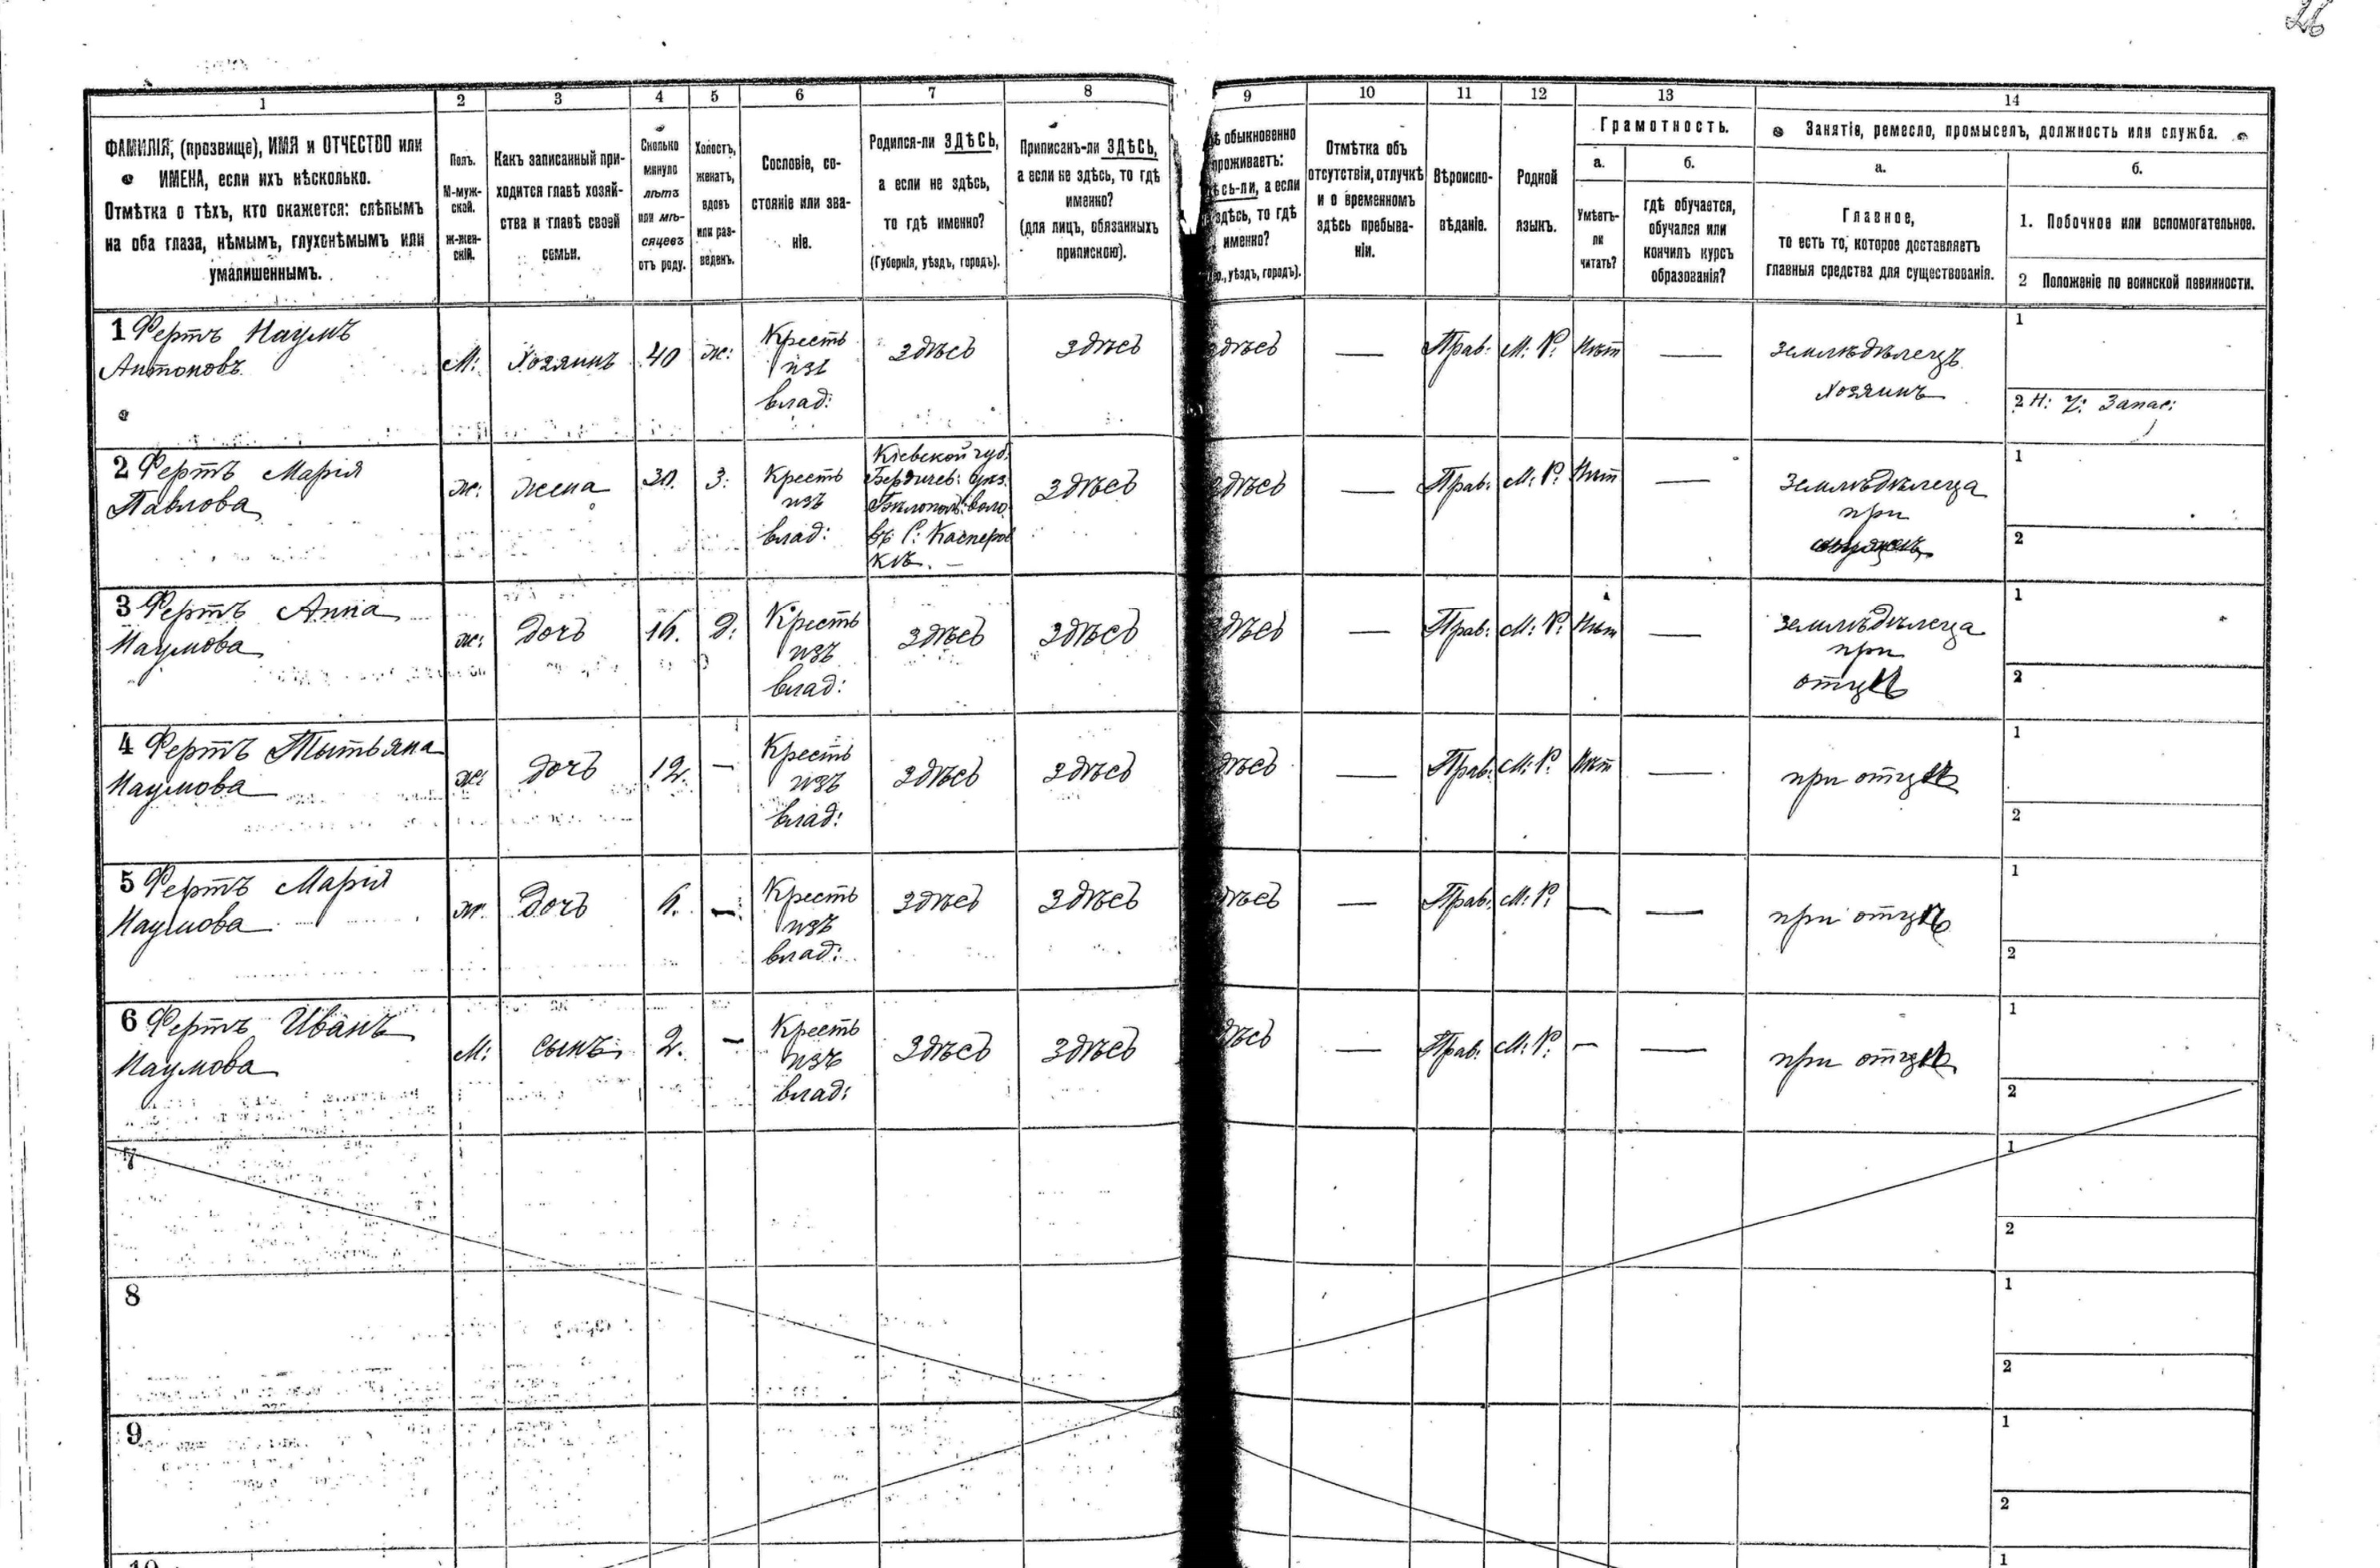 26
1 2 3 4 5 6 7 8 9 10 11 12 13 14
ФАМИЛІЯ, (прозвище), ИМЯ и ОТЧЕСТВО или
ИМЕНА, если ихъ нѣсколько.
Отмѣтка о тѣхъ, кто окажется: слѣпымъ
на оба глаза, нѣмымъ, глухонѣмымъ или
умалишеннымъ.
Полъ.
М-муж-
ской.
Ж-жен-
скій.
Какъ записанный при-
ходится главѣ хозяй-
ства и главѣ своей
семьи.
Сколько
минуло
лѣтъ
или мѣ-
сяцевъ
отъ роду.
Холостъ,
женатъ,
вдовъ
или раз-
веденъ.
Сословіе, со-
стояніе или зва-
ніе.
Родился-ли ЗДѢСЬ,
а если не здѣсь,
то гдѣ именно?
(Губернія, уѣздъ, городъ).
Приписанъ-ли ЗДѢСЬ,
а если не здѣсь, то гдѣ
именно?
(для лицъ, обязанныхъ
припискою).
ѣ обыкновенно
проживаетъ:
ѣсь-ли, а если
здѣсь, то гдѣ
именно?
уѣздъ, городъ).
Отмѣтка объ
отсутствіи, отлучкѣ
и о временномъ
здѣсь пребыва-
ніи.
Вѣроиспо-
вѣданіе.
Родной
языкъ.
Грамотность.
а.
Умѣетъ-
ли
читать?
б.
гдѣ обучается,
обучался или
кончилъ курсъ
образованія?
Занятіе, ремесло, промыселъ, должность или служба.
а.
Главное,
то есть то, которое доставляетъ
главныя средства для существованія.
б.
1. Побочное или вспомогательное.
2 Положеніе по воинской повинности.
1 Фертъ Наумъ
Антоновъ
М: Хозяинъ 40 ж: Кресть
изъ
влад:
здѣсь здѣсь здѣсь — Прав: М: Р: Нѣт — земледѣлецъ
Хозяинъ
1
2 Н: Ч: Запас:
2 Фертъ Марія
Павлова
ж: жена 30. З: Кресть
изъ
влад:
Кіевской губ:
Бердичев: уѣз:
Бѣлопол: воло
въ С: Касперов
кѣ.
здѣсь здѣсь — Прав: М: Р: Нѣт — земледѣлеца
при
1
2
3 Фертъ Анна
Наумова
ж: дочь 16. д: Кресть
изъ
влад:
здѣсь здѣсь дѣсь — Прав: М: Р: Нѣт — земледѣлеца
при
отцѣ
1
2
4 Фертъ Тытьяна
Наумова
ж: дочь 12. — Кресть
изъ
влад:
здѣсь здѣсь дѣсь — Прав: М: Р: Нѣт — при отцѣ
1
2
5 Фертъ Марія
Наумова
ж. дочь 6. — Кресть
изъ
влад:
здѣсь здѣсь дѣсь — Прав: М: Р: — — при отцѣ
1
2
6 Фертъ Иванъ
Наумова
М: сынъ 2. — Кресть
изъ
влад:
здѣсь здѣсь дѣсь — Прав: М: Р: — — при отцѣ
1
2
7
1
2
8
1
2
9
1
2
10
1